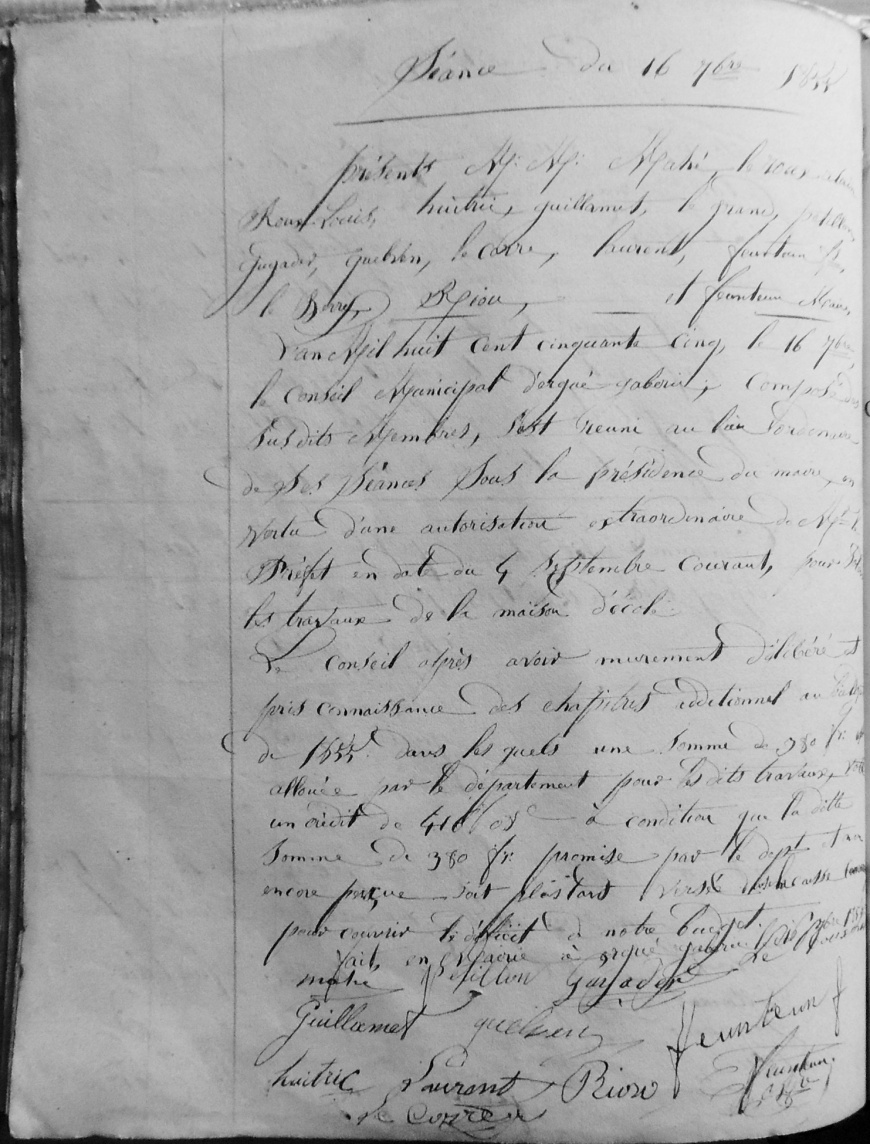 Séance du 16 7bre 1855
présents M. M. Mahé, le roux
Roux Louis, huitric, guillamet, le grand, petillon
gugader, quelven, le corre, laurent, feunteun f,
le Berry, Riou, et feunteun Maire,
L'an Mil huit cent cinquante cinq, le 16 7bre
le Conseil Municipal d'ergué gaberic, Composé des
susdits Membres, s'est reuni au lieu
de ses séances sous la présidence du maire, en
vertu d'une autorisation extraordinaire de Mr
Préfet en date du 4 Septembre Courant, pour
les travaux de la maison d'école
Le Conseil après avoir murement délibéré et
pris connaissance des chapitres additionnel au
de 1855 dans les quels une somme de 380 fr
allouée par le département pour les dits travaux,
un crédit de 410 f 05 c à condition que la ditte
somme de 380 fr. promise par le dept et non
encore perçue soit plustard versée
pour couvrir le déficit de notre budget.
fait en Mairie à ergué gaberic le 16 7bre 1855
mahé Petillon Gugader Le Roux
Guillamet quelven feunteun f
huitric Laurent Riou feunteun
Le Corre